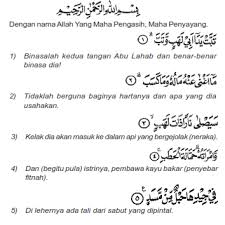 بِسْمِ اللهِ الرَّحْمٰنِ الرَّحِيْمِ
Dengan nama Allah Yang Maha Pengasih, Maha Penyayang.
تَبَّتْ يَدَآ اَبِيْ لَهَبٍ وَّتَبَّ ۝١
1) Binasalah kedua tangan Abu Lahab dan benar-benar
binasa dia!
مَآ اَغْنٰى عَنْهُ مَالُهٗ وَمَا كَسَبَ ۝٢
2) Tidaklah berguna baginya hartanya dan apa yang dia
usahakan.
سَيَصْلٰى نَارًا ذَاتَ لَهَبٍ ۝٣
3) Kelak dia akan masuk ke dalam api yang bergejolak (neraka).
وَّامْرَاَتُهٗ حَمَّالَةَ الْحَطَبِ ۝٤
4) Dan (begitu pula) istrinya, pembawa kayu bakar (penyebar
fitnah).
فِيْ جِيْدِهَا حَبْلٌ مِّنْ مَّسَدٍ ۝٥
5) Di lehernya ada tali dari sabut yang dipintal.